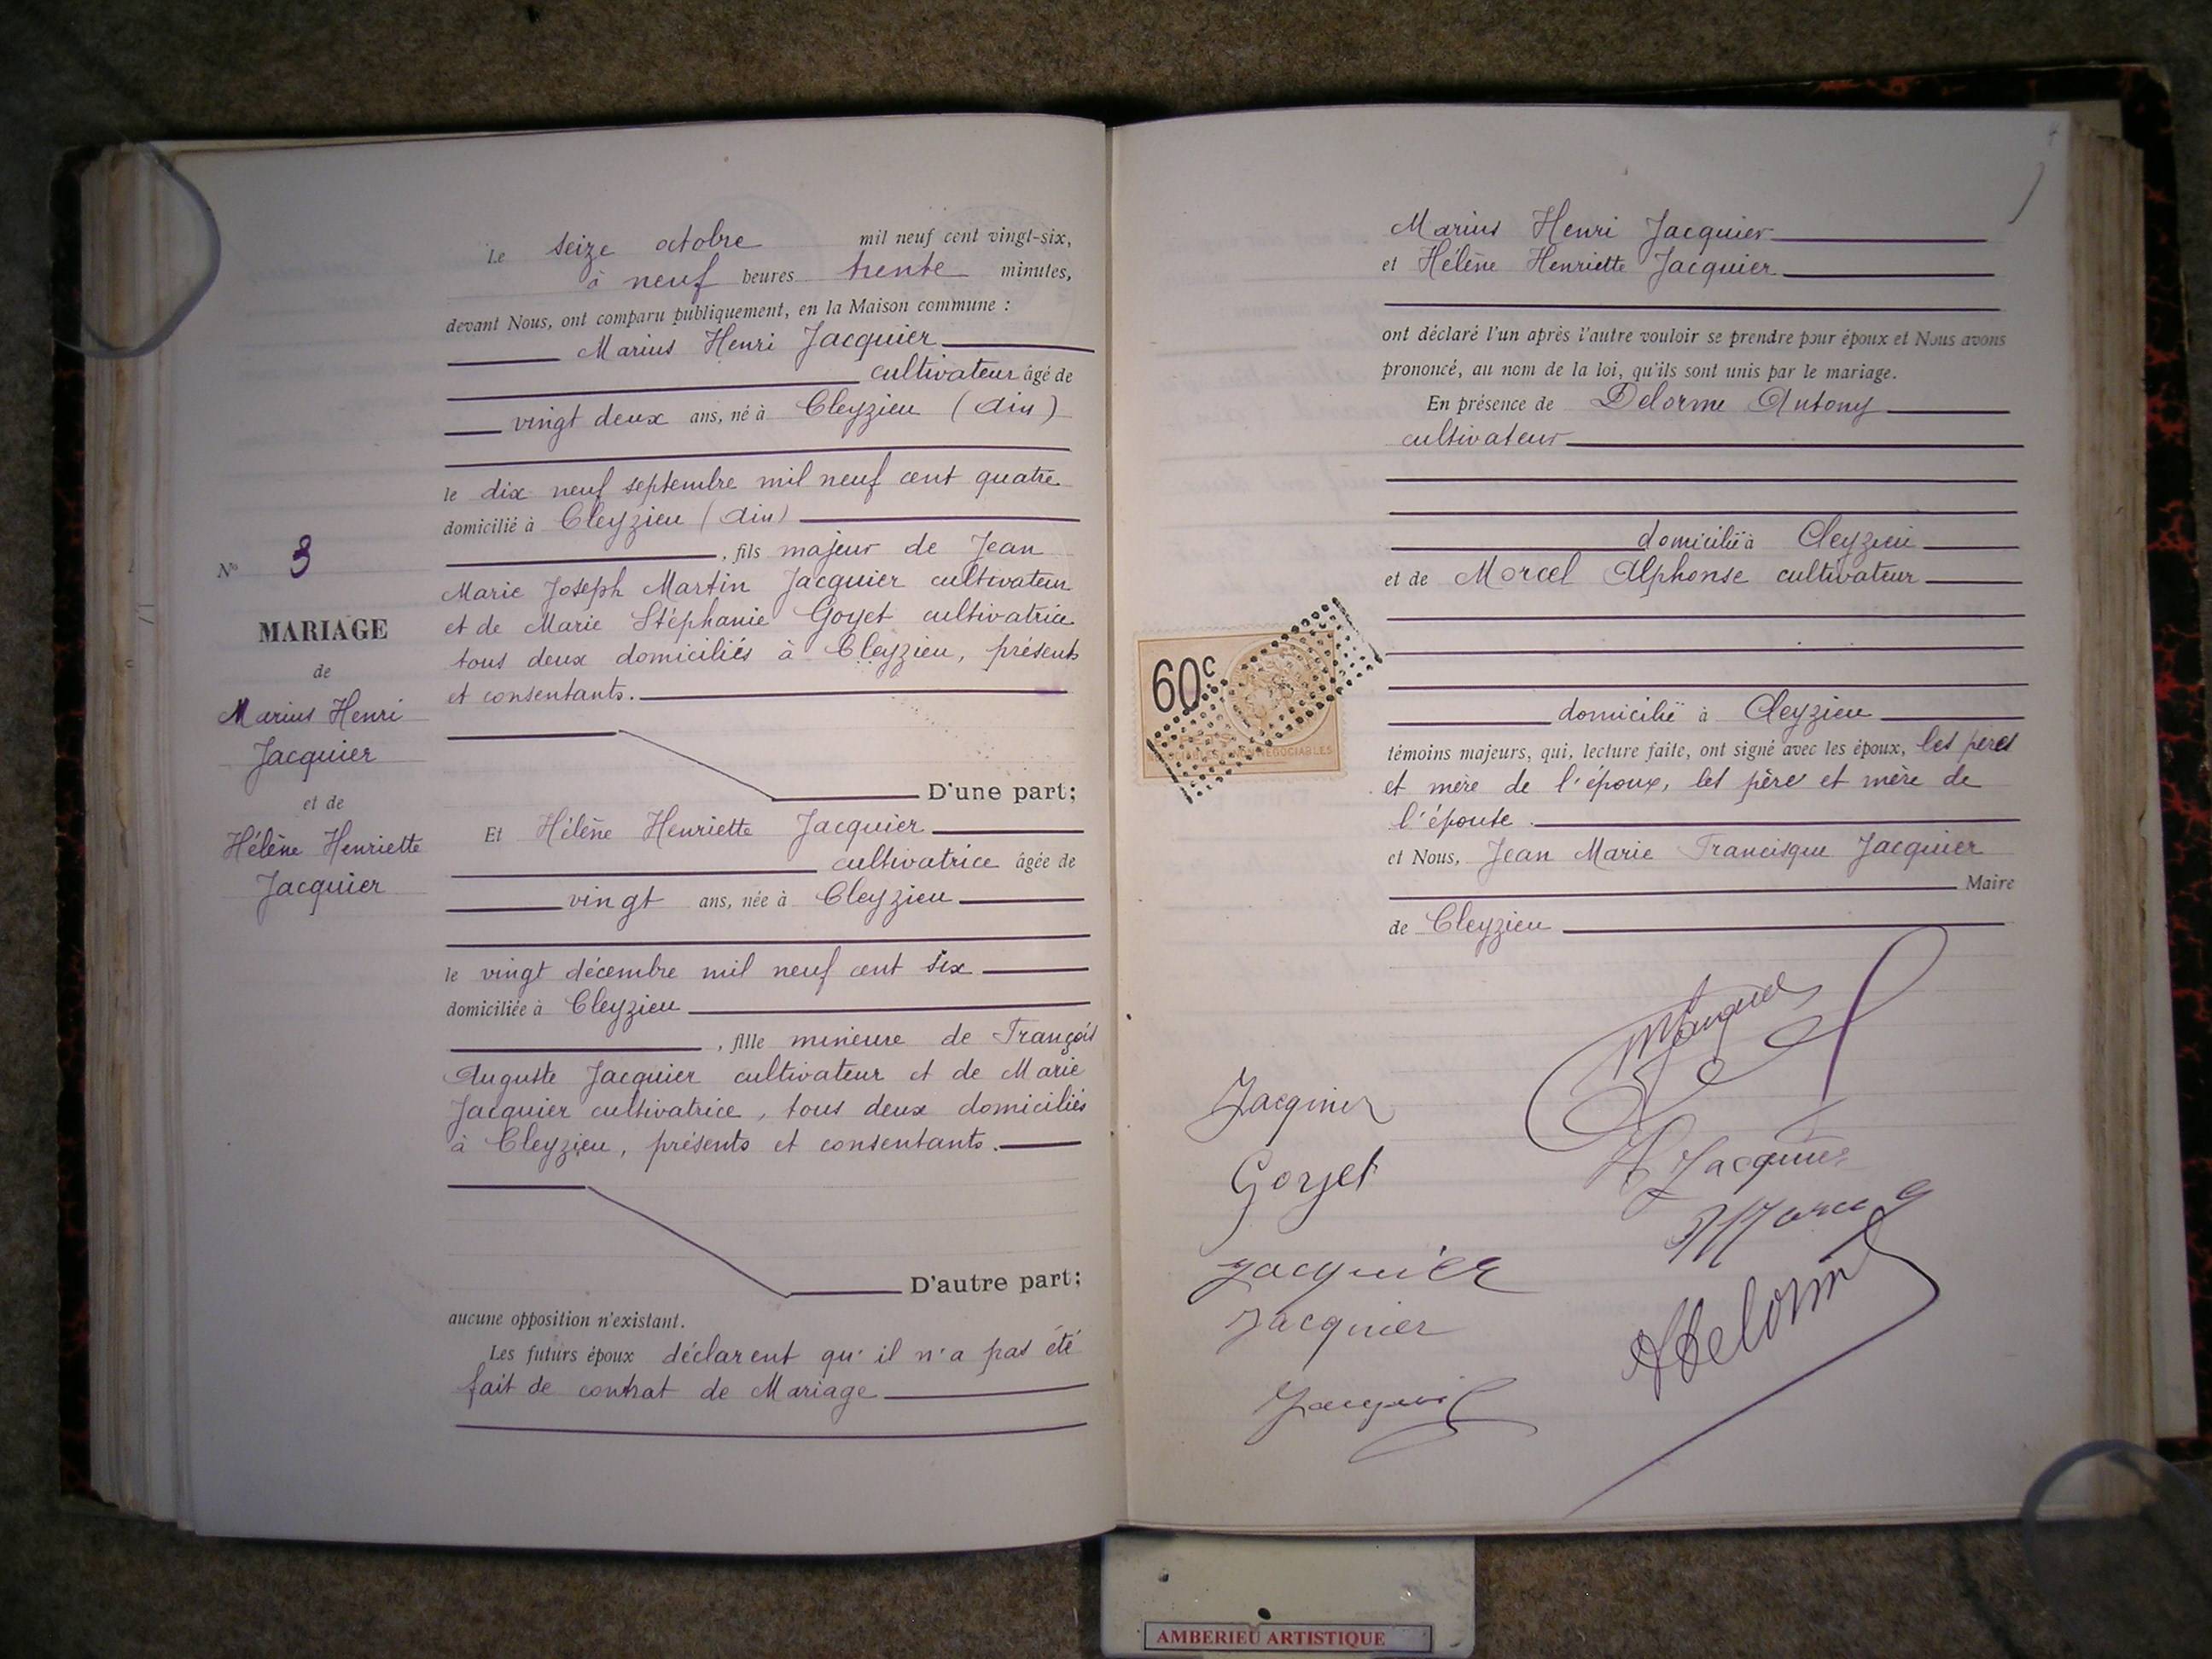 Le seize octobre mil neuf cent vingt-six,
à neuf heures trente minutes,
devant Nous, ont comparu publiquement, en la Maison commune :
Marius Henri Jacquier
cultivateur âgé de
vingt deux ans, né à Cleyzieu (Ain)
le dix neuf septembre mil neuf cent quatre
domicilié à Cleyzieu (Ain)
, fils majeur de Jean
Marie Joseph Martin Jacquier cultivateur
et de Marie Stéphanie Goyet cultivatrice
tous deux domiciliés à Cleyzieu, présents
et consentants.
D'une part;
N° 3
MARIAGE
de
Marius Henri
Jacquier
et de
Hélène Henriette
Jacquier
Et Hélène Henriette Jacquier
cultivatrice âgée de
vingt ans, née à Cleyzieu
le vingt décembre mil neuf cent six
domiciliée à Cleyzieu
, fille mineure de François
Auguste Jacquier cultivateur et de Marie
Jacquier cultivatrice, tous deux domiciliés
à Cleyzieu, présents et consentants.
D'autre part;
aucune opposition n'existant.
Les futurs époux déclarent qu'il n'a pas été
fait de contrat de Mariage
Marius Henri Jacquier
et Hélène Henriette Jacquier
ont déclaré l'un après l'autre vouloir se prendre pour époux et Nous avons
prononcé, au nom de la loi, qu'ils sont unis par le mariage.
En présence de Delorme Antony
cultivateur
domicilié à Cleyzieu
et de Morcel Alphonse cultivateur
domicilié à Cleyzieu
témoins majeurs, qui, lecture faite, ont signé avec les époux, les pères
et mère de l'époux, les père et mère de
l'épouse.
et Nous, Jean Marie Francisque Jacquier
Maire
de Cleyzieu
60c
NÉGOCIABLES
Jacquier
Goyet
Jacquier
Jacquier
Jacquier
H Jacquier
ADelorme
AMBERIEU ARTISTIQUE